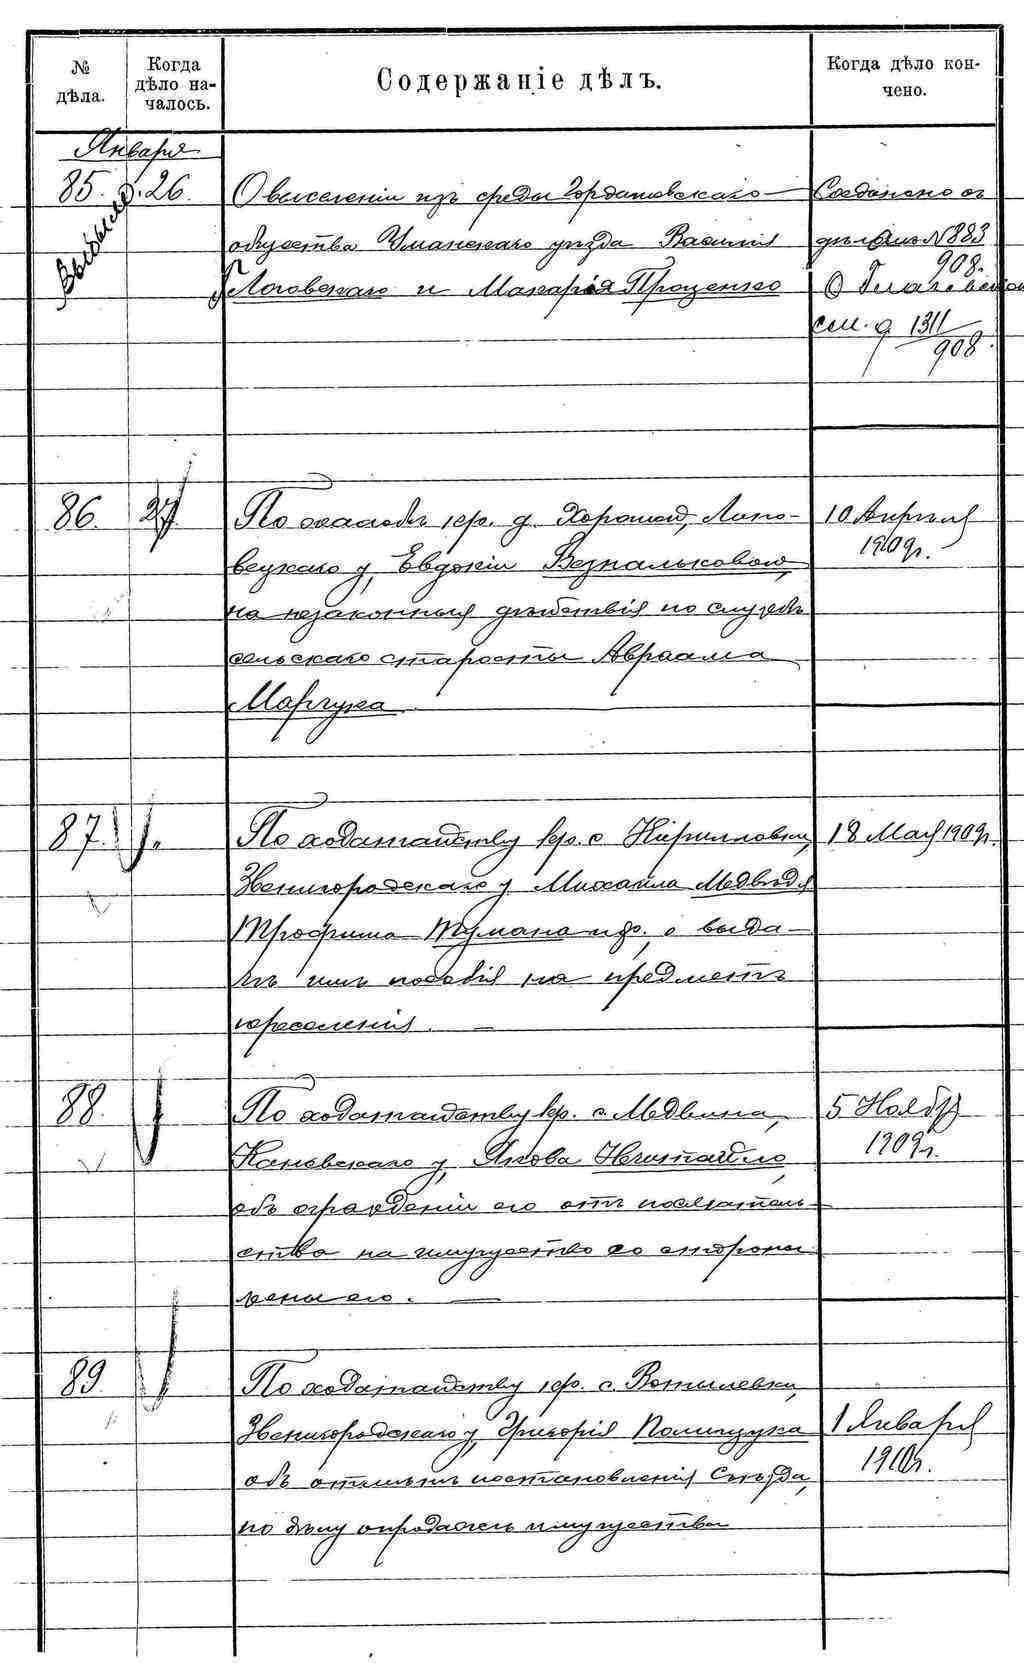 № дѣла.
Когда дѣло на-
чалось.
Содержаніе дѣлъ.
Когда дѣло кон-
чено.
Января
85.
Выбыло
26.
О выселеніи изъ среды Гордашовскаго
общества Уманскаго уѣзда Василія
Логовскаго и Макарія Проценко
Соединено съ
дѣломъ № 883
908.
см. д 1311
908.
86.
27
По жалобѣ кр. д. Хорошей, Липо-
вецкаго у, Евдокіи Безпальковой,
на незаконныя дѣйствія по службѣ
сельскаго старосты Авраама
Марчука
10 Апрѣля
1909г.
87.
"
По ходатайству кр. с Кирилловки,
Звенигородскаго у Михаила Медвѣдя
Трофима Тумана и др., о выда-
чѣ имъ пособія на предметъ
переселенія. —
18 Мая 1909г.
88.
По ходатайству кр. с. Медвина,
Каневскаго у, Якова Нечитайло
объ огражденіи его отъ посягатель-
ства на имущество со стороны
жены его. —
5 Ноября
1909г.
89
По ходатайству кр. с. Вотылевки,
Звенигородскаго у, Григорія Полищука
объ отмѣнѣ постановленія Съѣзда,
по дѣлу о продажѣ имущества
1 Января
1910г.